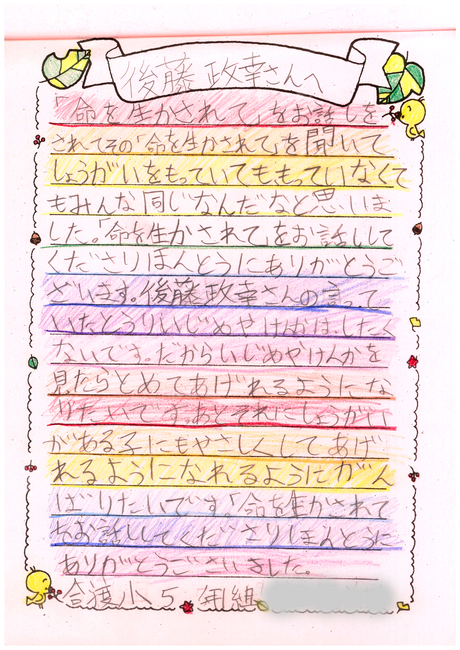 後藤政幸さんへ
「命を生かされて」をお話しを
されてその「命を生かされて」を聞いて
しょうがいをもっていてももっていなくて
もみんな同じなんだなと思いま
した。「命を生かされて」をお話しして
くださりほんとうにありがとうご
ざいます。後藤政幸さんの言って
いたとうりいじめやけんかはしたく
ないです。だからいじめやけんかを
見たらとめてあげれるようにな
りたいです。あとそれにしょうがい
がある子にもやさしくしてあげ
れるようになれるようにがん
ばりたいです。「命を生かされて
をお話ししてくださりほんとうに
ありがとうございました。
合渡小5年